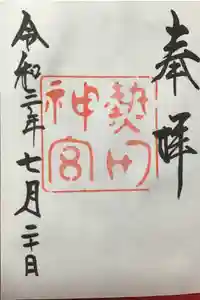 奉拝
熱田
神宮
令和二年七月二十日